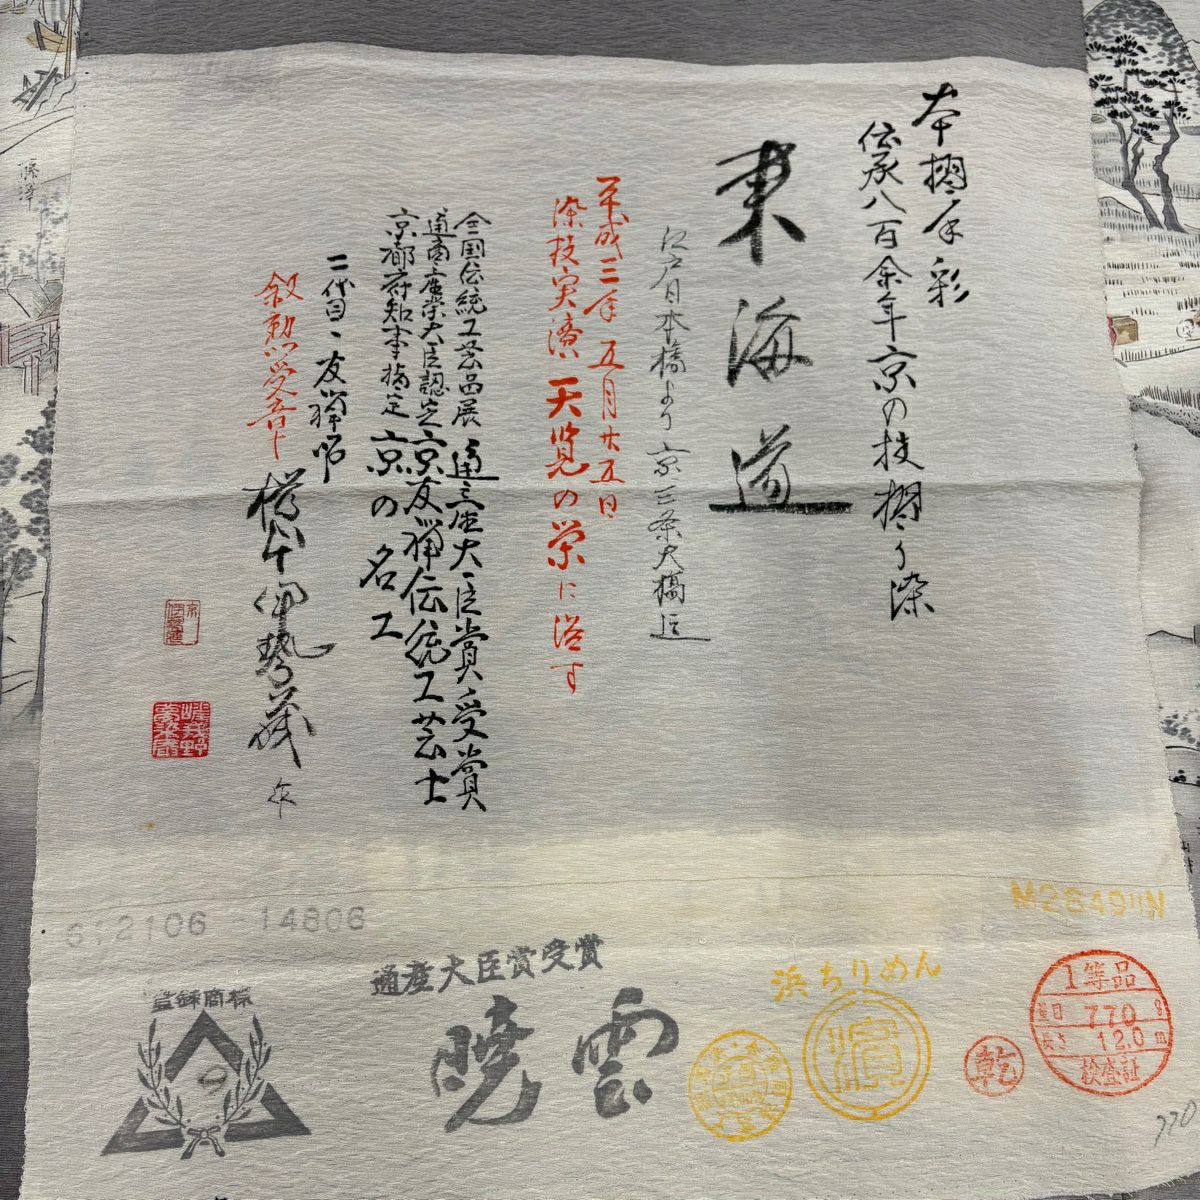 本摺手彩
伝承八百余年京の技摺り染
東海道
江戸日本橋より京三条大橋迄
平成三年五月廿五日
染技実演天覧の栄に浴す
全国伝統工芸品展通産大臣賞受賞
通商産業大臣認定京友禅伝統工芸士
京都府知事指定京の名工
二代目・友禅師
叙勲受章
伊勢蔵
作
藤澤
612106 -14806
M28491IN
登録商標
9
通産大臣賞受賞
暁雲
浜ちりめん
濱
乾
1等品
量目 770 g
長さ 12.0 m
検査証
770